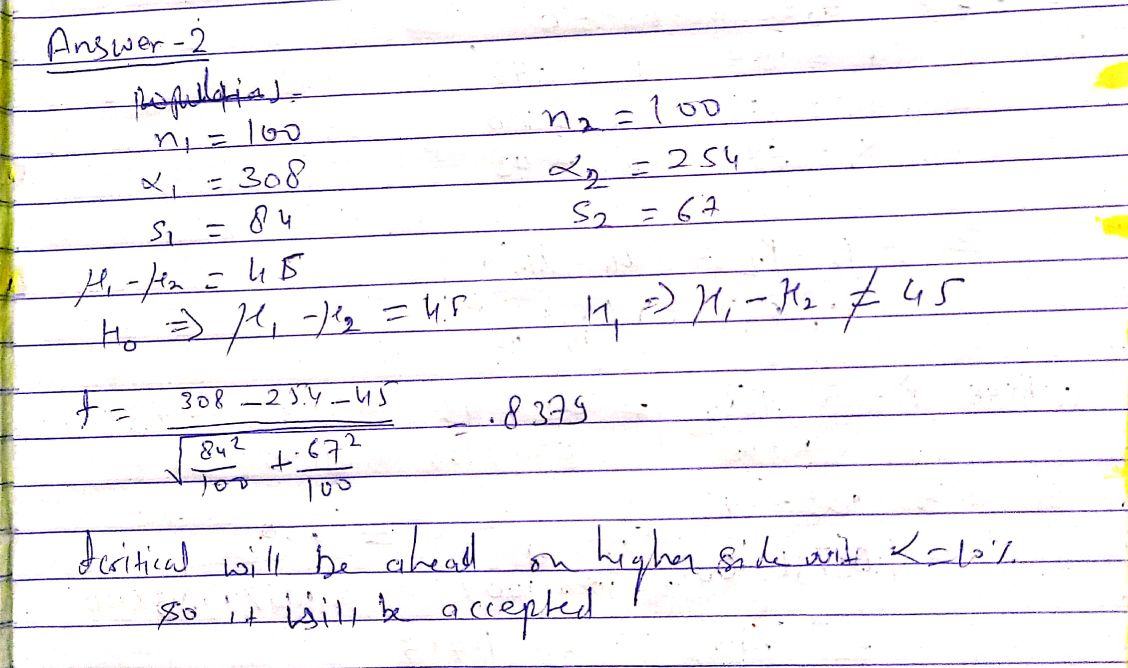 Answer-2
n₁ = 100 n₂ = 100
α₁ = 308 α₂ = 254
S₁ = 84 S₂ = 67
μ₁-μ₂ = 45
H₀ ⇒ μ₁-μ₂ = 45 H₁ ⇒ μ₁-μ₂ ≠ 45
t = (308-254-45)/√(84²/100 + 67²/100) = .8379
tcritical will be ahead on higher side with α=10%
so it will be accepted